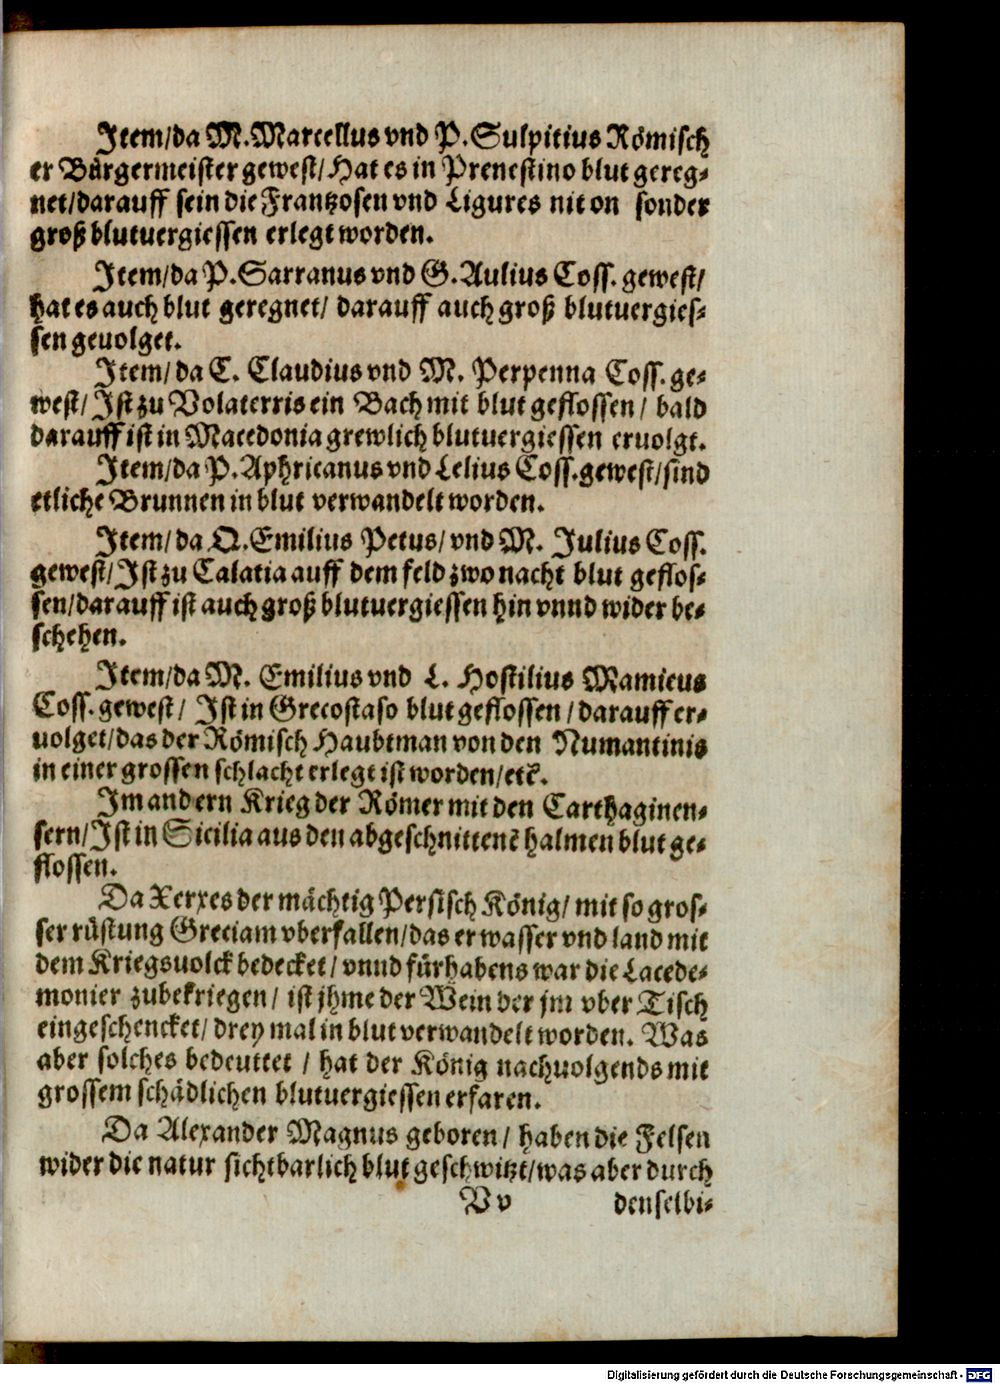 Item/da M. Marcellus vnd P. Sulpitius Römisch
er Bürgermeister gewest/Hat es in Prenestino blut gereg-
net/darauff sein die Frantzosen vnd Ligures nit on sonder
groß blutuergiessen erlegt worden.
Item/da P. Sarranus vnd G. Aulius Coss. gewest/
hat es auch blut geregnet/ darauff auch groß blutuergies-
sen geuolget.
Item/da C. Claudius vnd M. Perpenna Coss. ge-
west/Ist zu Volaterris ein Bach mit blut geflossen/ bald
darauff ist in Macedonia grewlich blutuergiessen eruolgt.
Item/da P. Aphricanus vnd Lelius Coss. gewest/sind
etliche Brunnen in blut verwandelt worden.
Item/da Q. Emilius Petus/vnd M. Julius Coss.
gewest/Ist zu Calatia auff dem feld zwo nacht blut geflos-
sen/darauff ist auch groß blutuergiessen hin vnnd wider be-
schehen.
Item/da M. Emilius vnd L. Hostilius Mamicus
Coss. gewest/ Ist in Grecostaso blut geflossen/darauff er-
uolget/das der Römisch Haubtman von den Numantinis
in einer grossen schlacht erlegt ist worden/etc̃.
Im andern Krieg der Römer mit den Carthaginen-
sern/Ist in Sicilia aus den abgeschnittenẽ halmen blut ge-
flossen.
Da Xerxes der mächtig Persisch König/mit so gros-
ser rüstung Greciam vberfallen/das er wasser vnd land mit
dem Kriegsuolck bedecket/vnnd fürhabens war die Lacede-
monier zubekriegen/ ist jhme der Wein der jm vber Tisch
eingeschencket/drey mal in blut verwandelt worden. Was
aber solches bedeuttet / hat der König nachuolgends mit
grossem schädlichen blutuergiessen erfaren.
Da Alexander Magnus geboren/haben die Felsen
wider die natur sichtbarlich blut geschwitzt/was aber durch
Vv denselbi-
Digitalisierung gefördert durch die Deutsche Forschungsgemeinschaft - DFG